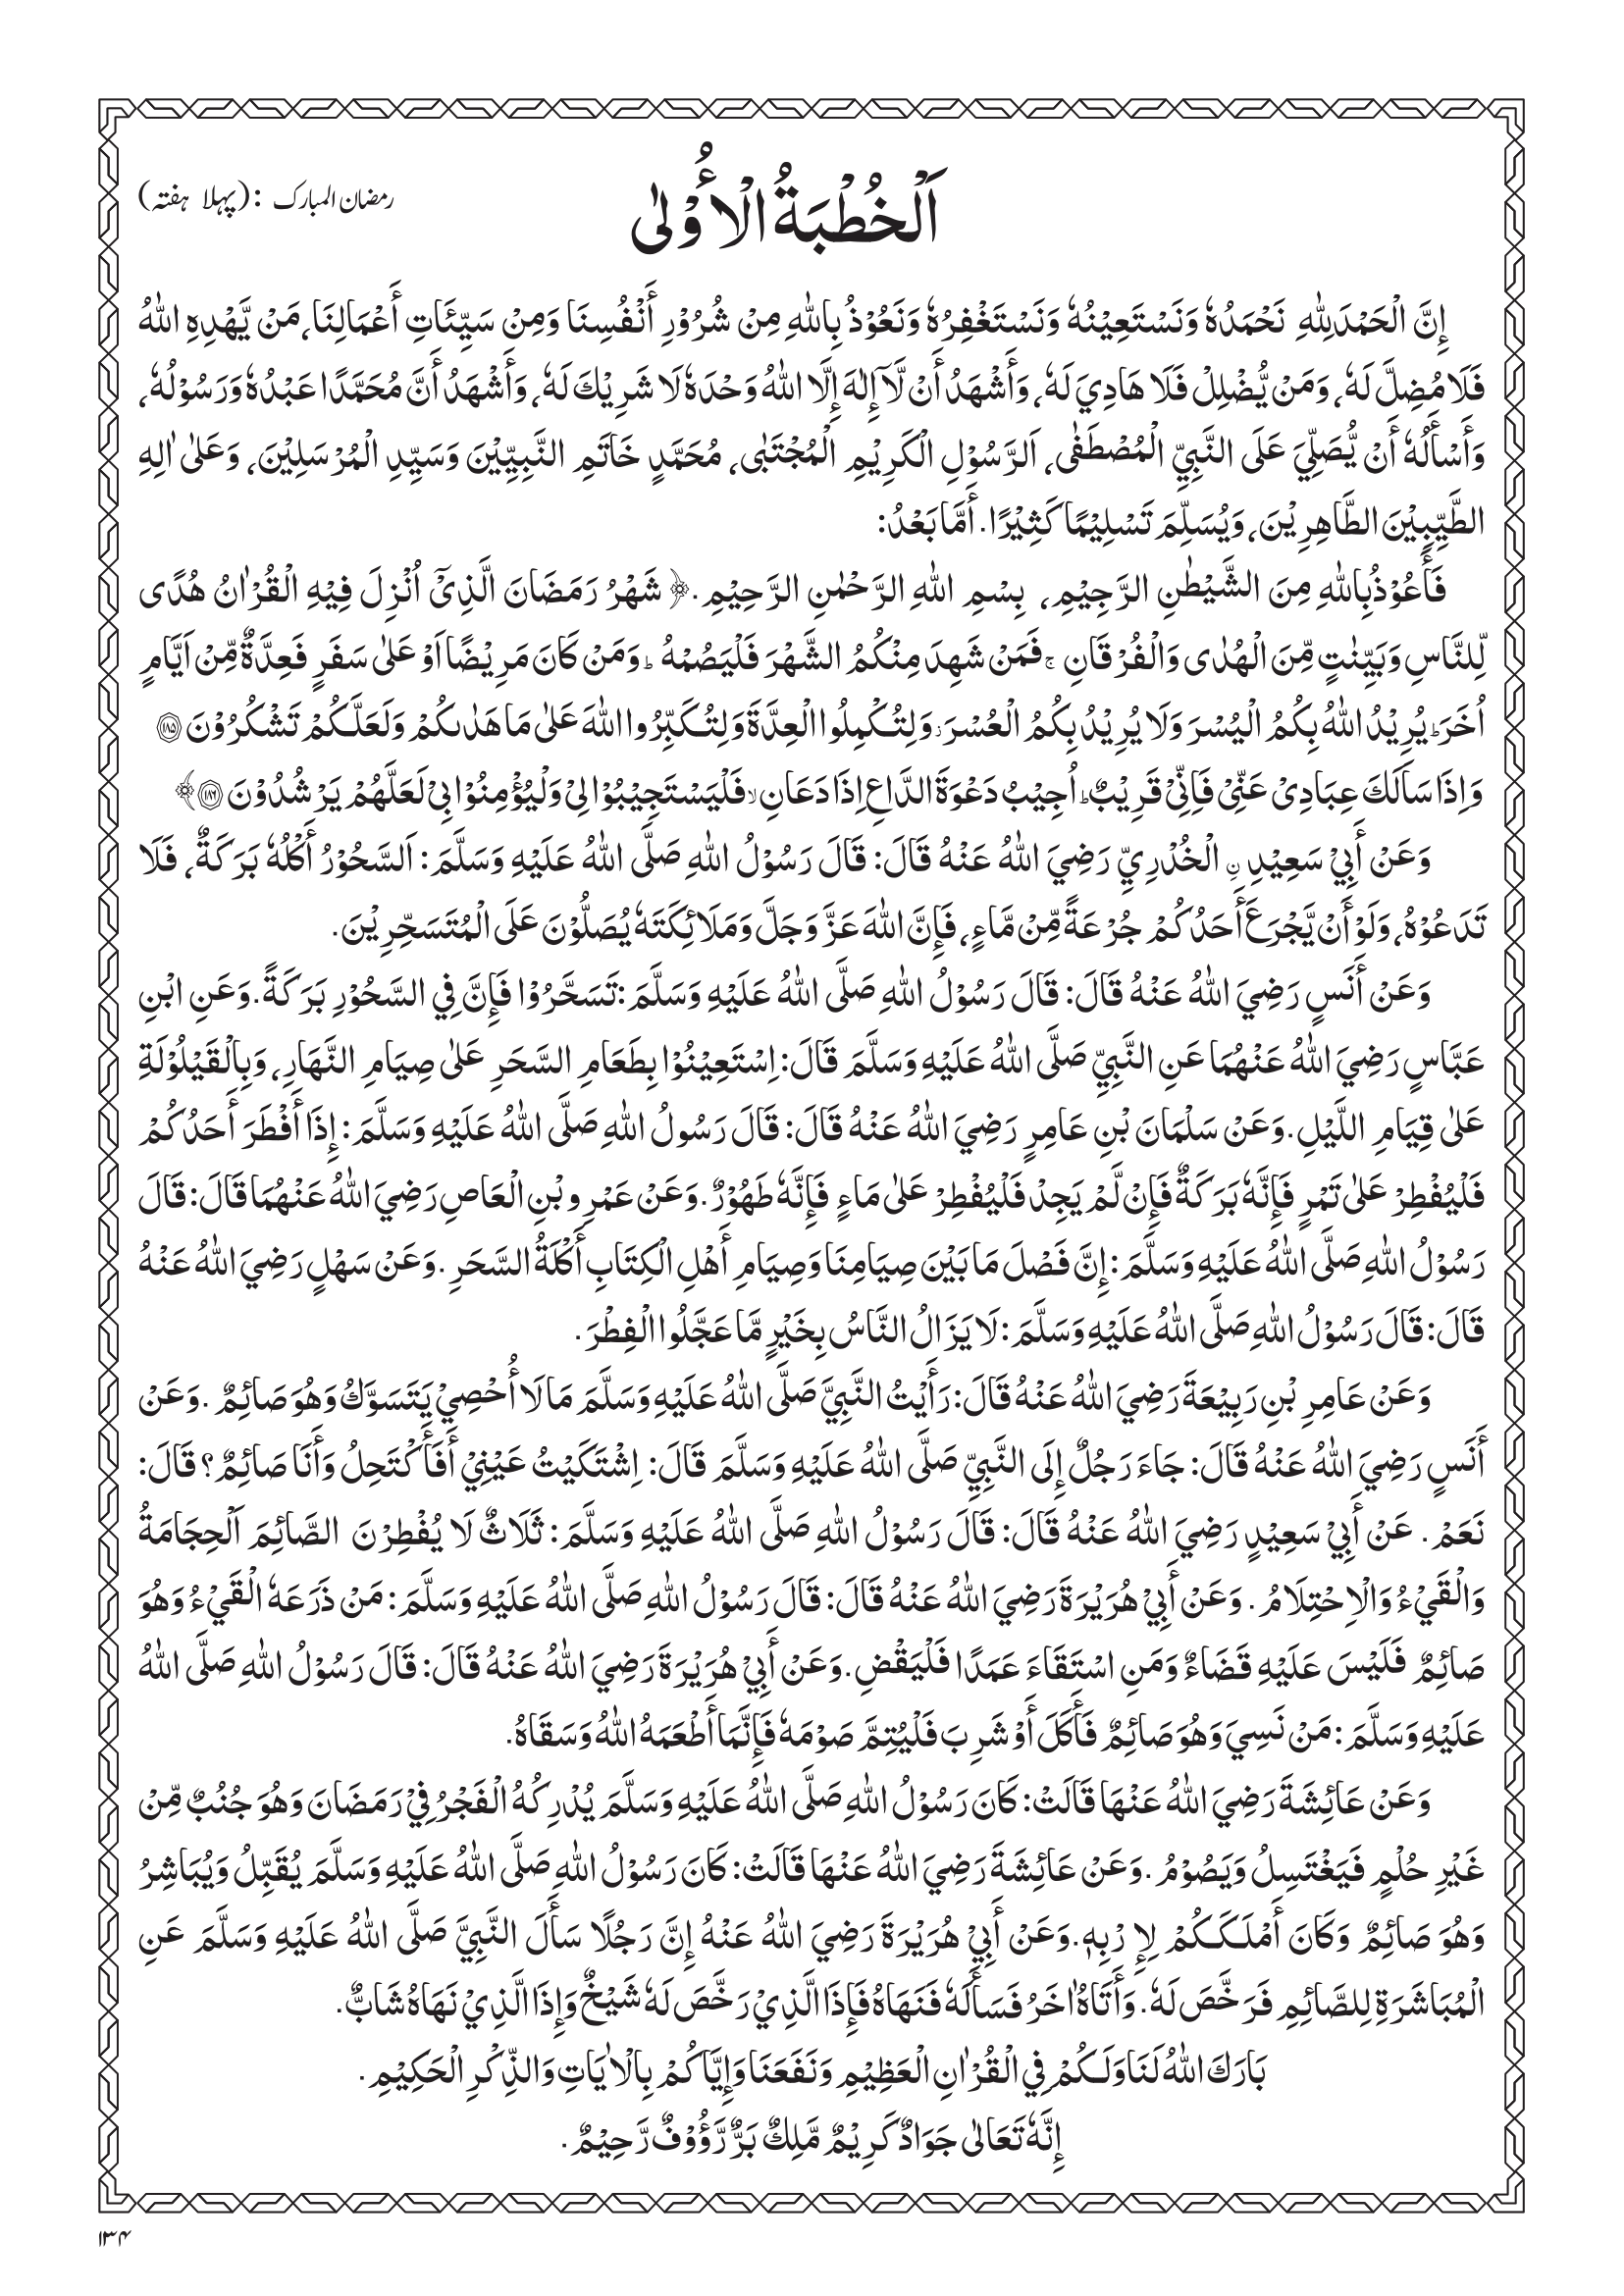 رمضان المبارک :(پہلا ہفتہ)
اَلْخُطْبَةُ الْأُوْلٰى
إِنَّ الْحَمْدَلِلّٰهِ نَحْمَدُهٗ وَنَسْتَعِيْنُهٗ وَنَسْتَغْفِرُهٗ وَنَعُوْذُ بِاللّٰهِ مِنْ شُرُوْرِ أَنْفُسِنَا وَمِنْ سَيِّئَاتِ أَعْمَالِنَا، مَنْ يَّهْدِهِ اللّٰهُ
فَلَا مُضِلَّ لَهٗ، وَمَنْ يُّضْلِلْ فَلَا هَادِيَ لَهٗ، وَأَشْهَدُ أَنْ لَّآ إِلٰهَ إِلَّا اللّٰهُ وَحْدَهٗ لَا شَرِيْكَ لَهٗ، وَأَشْهَدُ أَنَّ مُحَمَّدًا عَبْدُهٗ وَرَسُوْلُهٗ،
وَأَسْأَلُهٗ أَنْ يُّصَلِّيَ عَلَى النَّبِيِّ الْمُصْطَفٰى، اَلرَّسُوْلِ الْكَرِيْمِ الْمُجْتَبٰى، مُحَمَّدٍ خَاتَمِ النَّبِيِّيْنَ وَسَيِّدِ الْمُرْسَلِيْنَ، وَعَلٰى اٰلِهِ
الطَّيِّبِيْنَ الطَّاهِرِيْنَ، وَيُسَلِّمَ تَسْلِيْمًا كَثِيْرًا. أَمَّا بَعْدُ:
فَأَعُوْذُبِاللّٰهِ مِنَ الشَّيْطٰنِ الرَّجِيْمِ، بِسْمِ اللّٰهِ الرَّحْمٰنِ الرَّحِيْمِ. ﴿ شَهْرُ رَمَضَانَ الَّذِىْٓ اُنْزِلَ فِيْهِ الْقُرْاٰنُ هُدًى
لِّلنَّاسِ وَبَيِّنٰتٍ مِّنَ الْهُدٰى وَالْفُرْقَانِ ۚ فَمَنْ شَهِدَ مِنْكُمُ الشَّهْرَ فَلْيَصُمْهُ ؕ وَمَنْ كَانَ مَرِيْضًا اَوْ عَلٰى سَفَرٍ فَعِدَّةٌ مِّنْ اَيَّامٍ
اُخَرَ ؕ يُرِيْدُ اللّٰهُ بِكُمُ الْيُسْرَ وَلَا يُرِيْدُ بِكُمُ الْعُسْرَ ز وَلِتُكْمِلُوا الْعِدَّةَ وَلِتُكَبِّرُوا اللّٰهَ عَلٰى مَا هَدٰىكُمْ وَلَعَلَّكُمْ تَشْكُرُوْنَ ﴿۱۸۵﴾
وَاِذَا سَاَلَكَ عِبَادِىْ عَنِّىْ فَاِنِّىْ قَرِيْبٌ ؕ اُجِيْبُ دَعْوَةَ الدَّاعِ اِذَا دَعَانِ ۙ فَلْيَسْتَجِيْبُوْا لِىْ وَلْيُؤْمِنُوْا بِىْ لَعَلَّهُمْ يَرْشُدُوْنَ ﴿۱۸۶﴾ ﴾
وَعَنْ أَبِيْ سَعِيْدِ نِ الْخُدْرِيِّ رَضِيَ اللّٰهُ عَنْهُ قَالَ: قَالَ رَسُوْلُ اللّٰهِ صَلَّى اللّٰهُ عَلَيْهِ وَسَلَّمَ: اَلسَّحُوْرُ أَكْلُهٗ بَرَكَةٌ، فَلَا
تَدَعُوْهُ، وَلَوْ أَنْ يَّجْرَعَ أَحَدُكُمْ جُرْعَةً مِّنْ مَّاءٍ، فَإِنَّ اللّٰهَ عَزَّ وَجَلَّ وَمَلَائِكَتَهٗ يُصَلُّوْنَ عَلَى الْمُتَسَحِّرِيْنَ.
وَعَنْ أَنَسٍ رَضِيَ اللّٰهُ عَنْهُ قَالَ: قَالَ رَسُوْلُ اللّٰهِ صَلَّى اللّٰهُ عَلَيْهِ وَسَلَّمَ: تَسَحَّرُوْا فَإِنَّ فِي السَّحُوْرِ بَرَكَةً. وَعَنِ ابْنِ
عَبَّاسٍ رَضِيَ اللّٰهُ عَنْهُمَا عَنِ النَّبِيِّ صَلَّى اللّٰهُ عَلَيْهِ وَسَلَّمَ قَالَ: اِسْتَعِيْنُوْا بِطَعَامِ السَّحَرِ عَلٰى صِيَامِ النَّهَارِ، وَبِالْقَيْلُوْلَةِ
عَلٰى قِيَامِ اللَّيْلِ. وَعَنْ سَلْمَانَ بْنِ عَامِرٍ رَضِيَ اللّٰهُ عَنْهُ قَالَ: قَالَ رَسُولُ اللّٰهِ صَلَّى اللّٰهُ عَلَيْهِ وَسَلَّمَ: إِذَا أَفْطَرَ أَحَدُكُمْ
فَلْيُفْطِرْ عَلٰى تَمْرٍ فَإِنَّهٗ بَرَكَةٌ فَإِنْ لَّمْ يَجِدْ فَلْيُفْطِرْ عَلٰى مَاءٍ فَإِنَّهٗ طَهُوْرٌ. وَعَنْ عَمْرِو بْنِ الْعَاصِ رَضِيَ اللّٰهُ عَنْهُمَا قَالَ: قَالَ
رَسُوْلُ اللّٰهِ صَلَّى اللّٰهُ عَلَيْهِ وَسَلَّمَ: إِنَّ فَصْلَ مَا بَيْنَ صِيَامِنَا وَصِيَامِ أَهْلِ الْكِتَابِ أَكْلَةُ السَّحَرِ. وَعَنْ سَهْلٍ رَضِيَ اللّٰهُ عَنْهُ
قَالَ: قَالَ رَسُوْلُ اللّٰهِ صَلَّى اللّٰهُ عَلَيْهِ وَسَلَّمَ: لَا يَزَالُ النَّاسُ بِخَيْرٍ مَّا عَجَّلُوا الْفِطْرَ.
وَعَنْ عَامِرِ بْنِ رَبِيْعَةَ رَضِيَ اللّٰهُ عَنْهُ قَالَ: رَأَيْتُ النَّبِيَّ صَلَّى اللّٰهُ عَلَيْهِ وَسَلَّمَ مَا لَا أُحْصِيْ يَتَسَوَّكُ وَهُوَ صَائِمٌ. وَعَنْ
أَنَسٍ رَضِيَ اللّٰهُ عَنْهُ قَالَ: جَاءَ رَجُلٌ إِلَى النَّبِيِّ صَلَّى اللّٰهُ عَلَيْهِ وَسَلَّمَ قَالَ: اِشْتَكَيْتُ عَيْنِيْ أَفَأَكْتَحِلُ وَأَنَا صَائِمٌ؟ قَالَ:
نَعَمْ. عَنْ أَبِيْ سَعِيْدٍ رَضِيَ اللّٰهُ عَنْهُ قَالَ: قَالَ رَسُوْلُ اللّٰهِ صَلَّى اللّٰهُ عَلَيْهِ وَسَلَّمَ: ثَلَاثٌ لَا يُفْطِرْنَ الصَّائِمَ اَلْحِجَامَةُ
وَالْقَيْءُ وَالْاِحْتِلَامُ. وَعَنْ أَبِيْ هُرَيْرَةَ رَضِيَ اللّٰهُ عَنْهُ قَالَ: قَالَ رَسُوْلُ اللّٰهِ صَلَّى اللّٰهُ عَلَيْهِ وَسَلَّمَ: مَنْ ذَرَعَهُ الْقَيْءُ وَهُوَ
صَائِمٌ فَلَيْسَ عَلَيْهِ قَضَاءٌ وَمَنِ اسْتَقَاءَ عَمَدًا فَلْيَقْضِ. وَعَنْ أَبِيْ هُرَيْرَةَ رَضِيَ اللّٰهُ عَنْهُ قَالَ: قَالَ رَسُوْلُ اللّٰهِ صَلَّى اللّٰهُ
عَلَيْهِ وَسَلَّمَ: مَنْ نَسِيَ وَهُوَ صَائِمٌ فَأَكَلَ أَوْ شَرِبَ فَلْيُتِمَّ صَوْمَهٗ فَإِنَّمَا أَطْعَمَهُ اللّٰهُ وَسَقَاهُ.
وَعَنْ عَائِشَةَ رَضِيَ اللّٰهُ عَنْهَا قَالَتْ: كَانَ رَسُوْلُ اللّٰهِ صَلَّى اللّٰهُ عَلَيْهِ وَسَلَّمَ يُدْرِكُهُ الْفَجْرُ فِيْ رَمَضَانَ وَهُوَ جُنُبٌ مِّنْ
غَيْرِ حُلْمٍ فَيَغْتَسِلُ وَيَصُوْمُ. وَعَنْ عَائِشَةَ رَضِيَ اللّٰهُ عَنْهَا قَالَتْ: كَانَ رَسُوْلُ اللّٰهِ صَلَّى اللّٰهُ عَلَيْهِ وَسَلَّمَ يُقَبِّلُ وَيُبَاشِرُ
وَهُوَ صَائِمٌ وَكَانَ أَمْلَكَكُمْ لِإِرْبِهٖ. وَعَنْ أَبِيْ هُرَيْرَةَ رَضِيَ اللّٰهُ عَنْهُ إِنَّ رَجُلًا سَأَلَ النَّبِيَّ صَلَّى اللّٰهُ عَلَيْهِ وَسَلَّمَ عَنِ
الْمُبَاشَرَةِ لِلصَّائِمِ فَرَخَّصَ لَهٗ. وَأَتَاهُ اٰخَرُ فَسَأَلَهٗ فَنَهَاهُ فَإِذَا الَّذِيْ رَخَّصَ لَهٗ شَيْخٌ وَإِذَا الَّذِيْ نَهَاهُ شَابٌّ.
بَارَكَ اللّٰهُ لَنَا وَلَكُمْ فِي الْقُرْاٰنِ الْعَظِيْمِ وَنَفَعَنَا وَإِيَّاكُمْ بِالْاٰيَاتِ وَالذِّكْرِ الْحَكِيْمِ.
إِنَّهٗ تَعَالٰى جَوَادٌ كَرِيْمٌ مَّلِكٌ بَرٌّ رَّؤُوْفٌ رَّحِيْمٌ.
۱۳۴